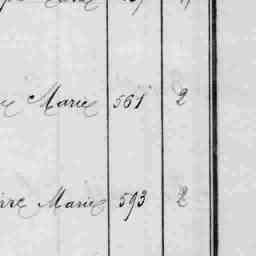 Marie 561 2
rre Marie 593 2